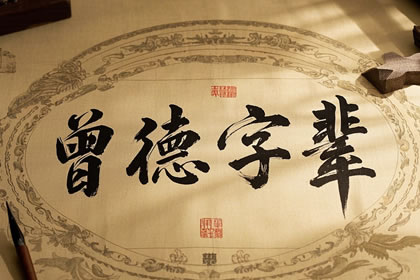 曾德字辈